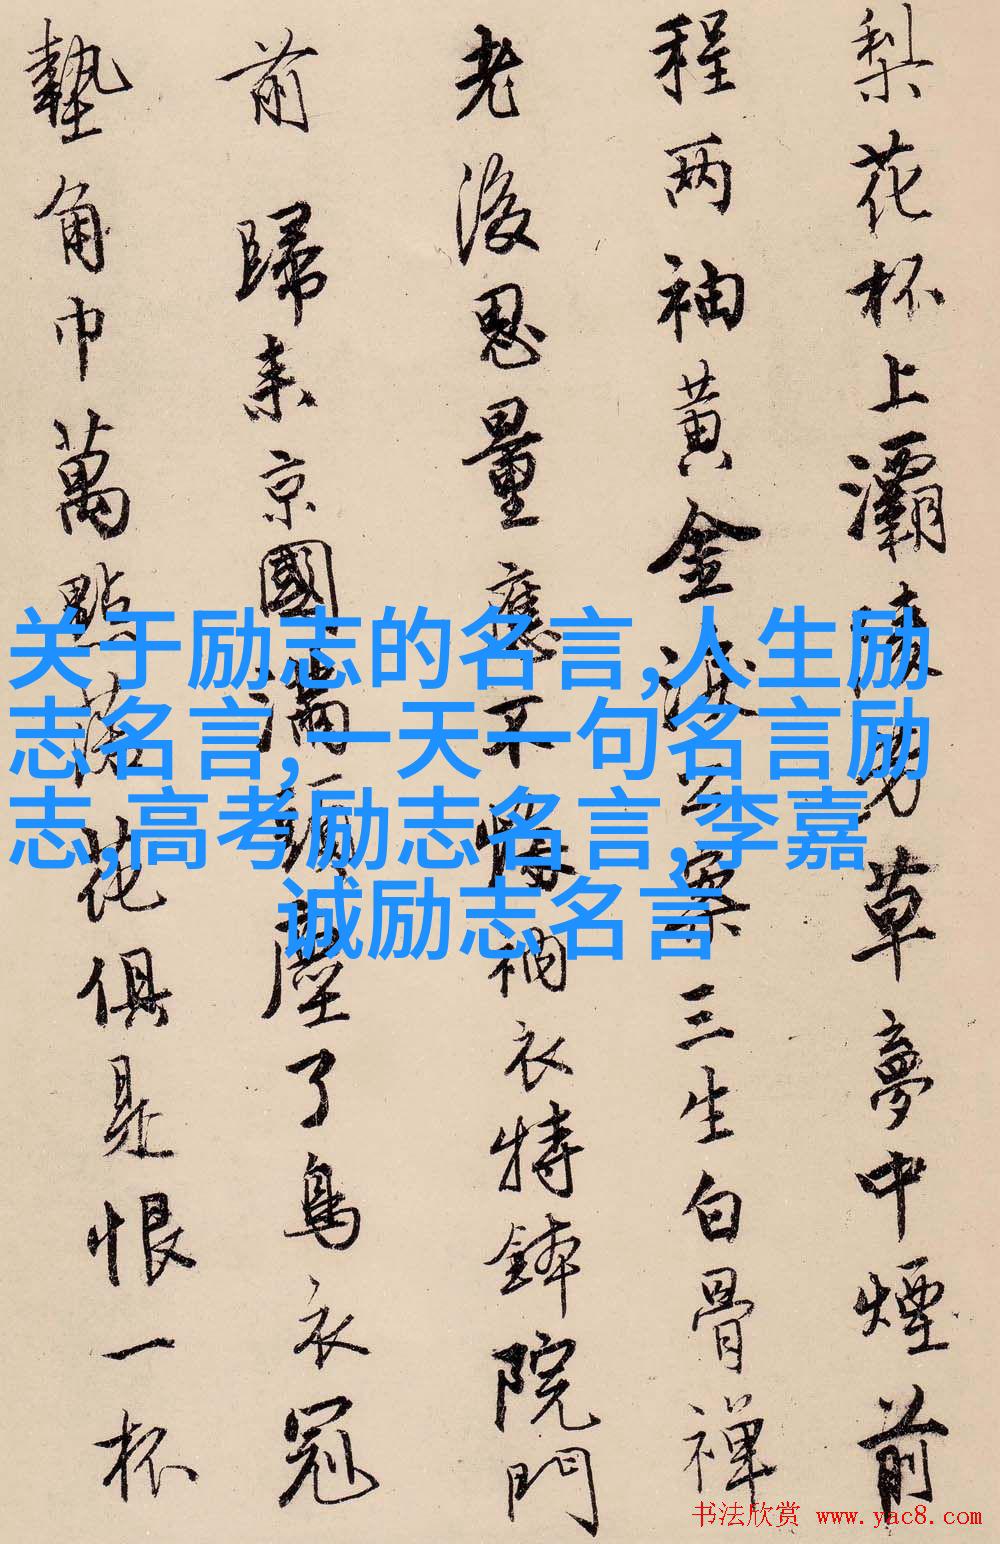 梨花杯上灞陵草夢中煙前
程两袖黃金淚公案三生白骨禪
老後思量應不悔衲衣持鉢院門
前 歸来京國滿頭塵了烏衣冠
墊角巾萬點落花俱是恨一杯
关于励志的名言,人生励
志名言,一天一句名言励
志,高考励志名言,李嘉
诚励志名言
书法欣赏 www.yac8.com